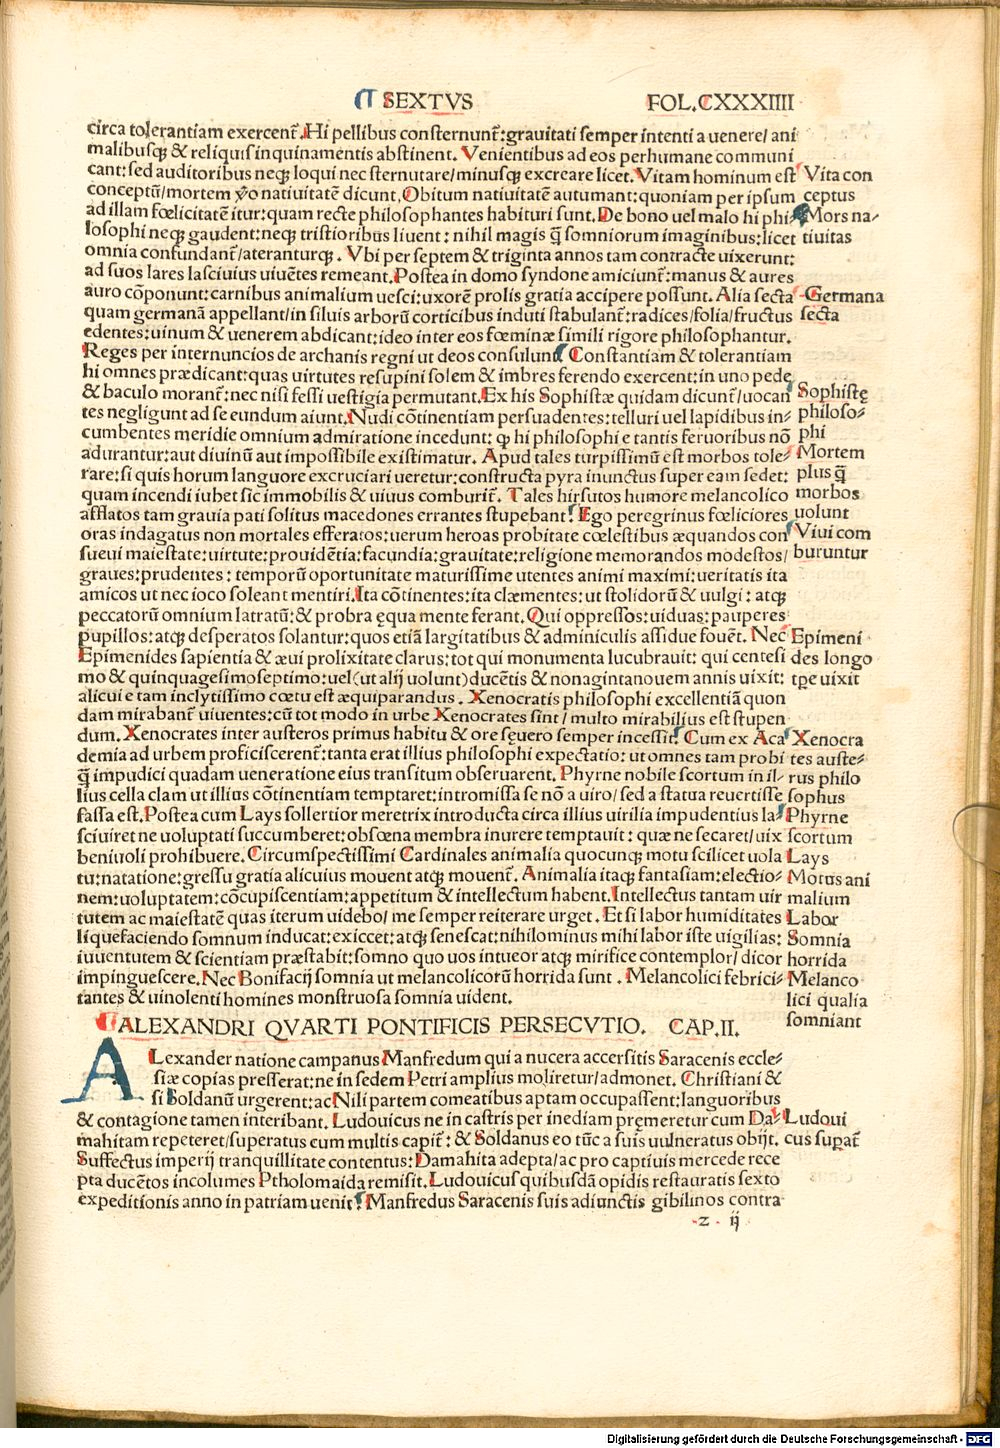 SEXTVS FOL.CXXXIIII
circa tolerantiam exercent᷑. Hi pellibus consternunt᷑: grauitati semper intenti a uenere/ ani
malibusqꝫ & reliquis inquinamentis abstinent. Venientibus ad eos perhumane communi
cant: sed auditoribus neqꝫ loqui nec sternutare/ minusqꝫ excreare licet. Vitam hominum est
conceptū/ mortem ỽo natiuitatē dicunt. Obitum natiuitatē autumant: quoniam per ipsum
ad illam fœlicitatē itur: quam recte philosophantes habituri sunt. De bono uel malo hi phi-
losophi neqꝫ gaudent: neqꝫ tristioribus liuent: nihil magis q̄ somniorum imaginibus: licet
omnia confundant᷑/ ateranturqꝫ. Vbi per septem & triginta annos tam contracte uixerunt:
ad suos lares lasciuius uiuētes remeant. Postea in domo syndone amiciunt᷑: manus & aures
auro cōponunt: carnibus animalium uesci: uxorē prolis gratia accipere possunt. Alia secta
quam germanā appellant/ in siluis arborū corticibus induti stabulant᷑: radices/ folia/ fructus
edentes: uinum & uenerem abdicant: ideo inter eos fœminæ simili rigore philosophantur.
Reges per internuncios de archanis regni ut deos consulunt. Constantiam & tolerantiam
hi omnes prædicant: quas uirtutes resupini solem & imbres ferendo exercent: in uno pede
& baculo morant᷑: nec nisi fessi uestigia permutant. Ex his Sophistæ quidam dicunt᷑/ uocan
tes negligunt ad se eundum aiunt. Nudi cōtinentiam persuadentes: telluri uel lapidibus in-
cumbentes meridie omnium admiratione incedunt: ꝙ hi philosophi e tantis feruoribus nō
adurantur: aut diuinū aut impossibile existimatur. Apud tales turpissimū est morbos tole-
rare: si quis horum languore excruciari ueretur: constructa pyra inunctus super eam sedet:
quam incendi iubet sic immobilis & uiuus comburit᷑. Tales hirsutos humore melancolico
afflatos tam grauia pati solitus macedones errantes stupebant. Ego peregrinus fœliciores
oras indagatus non mortales efferatos: uerum heroas probitate cœlestibus æquandos con
sueui maiestate: uirtute: prouidētia: facundia: grauitate: religione memorandos modestos/
graues: prudentes: temporū oportunitate maturissime utentes animi maximi: ueritatis ita
amicos ut nec ioco soleant mentiri. Ita cōtinentes: ita clæmentes: ut stolidorū & uulgi: atqꝫ
peccatorū omnium latratū: & probra ęqua mente ferant. Qui oppressos: uiduas: pauperes
pupillos: atqꝫ desperatos solantur: quos etiā largitatibus & adminiculis assidue fouēt. Nec
Epimenides sapientia & æui prolixitate clarus: tot qui monumenta lucubrauit: qui centesi
mo & quinquagesimoseptimo: uel (ut alij uolunt) ducētis & nonagintanouem annis uixit:
alicui e tam inclytissimo cœtu est æquiparandus. Xenocratis philosophi excellentiā quon
dam mirabant᷑ uiuentes: cū tot modo in urbe Xenocrates sint/ multo mirabilius est stupen
dum. Xenocrates inter austeros primus habitu & ore sęuero semper incessit. Cum ex Aca
demia ad urbem proficisceren̄t: tanta erat illius philosophi expectatio: ut omnes tam probi
q̄ impudici quadam ueneratione eius transitum obseruarent. Phyrne nobile scortum in il-
lius cella clam ut illius cōtinentiam temptaret: intromissa se nō a uiro/ sed a statua reuertisse
fassa est. Postea cum Lays sollertior meretrix introducta circa illius uirilia impudentius la-
sciuiret ne uoluptati succumberet: obscœna membra inurere temptauit: quæ ne secaret/ uix
beniuoli prohibuere. Circumspectissimi Cardinales animalia quocunqꝫ motu scilicet uola
tu: natatione: gressu gratia alicuius mouent atqꝫ mouent᷑. Animalia itaqꝫ fantasiam: electio-
nem: uoluptatem: cōcupiscentiam: appetitum & intellectum habent. Intellectus tantam uir
tutem ac maiestatē quas iterum uidebo/ me semper reiterare urget. Et si labor humiditates
liquefaciendo somnum inducat: exiccet: atqꝫ senescat: nihilominus mihi labor iste uigilias:
iuuentutem & scientiam præstabit: somno quo uos intueor atqꝫ mirifice contemplor/ dicor
impinguescere. Nec Bonifacij somnia ut melancolicorū horrida sunt. Melancolici febrici-
tantes & uinolenti homines monstruosa somnia uident.
ALEXANDRI QVARTI PONTIFICIS PERSECVTIO. CAP.II.
ALexander natione campanus Manfredum qui a nucera accersitis Saracenis eccle-
siæ copias presserat: ne in sedem Petri amplius moliretur/ admonet. Christiani &
si Soldanū urgerent: ac Nili partem comeatibus aptam occupassent: languoribus
& contagione tamen interibant. Ludouicus ne in castris per inediam pręmeretur cum Da-
mahitam repeteret/ superatus eum multis capit᷑: & Soldanus eo tūc a suis uulneratus obijt.
Suffectus imperij tranquillitate contentus: Damahita adepta/ ac pro captiuis mercede rece
pta ducētos incolumes Ptholomaida remisit. Ludouicus quibusdā opidis restauratis sexto
expeditionis anno in patriam uenit. Manfredus Saracenis suis adiunctis gibilinos contra
z ij
Vita con
ceptus
Mors na-
tiuitas
Germana
secta
Sophistę
philoso-
phi
Mortem
plus q̄
morbos
uolunt
Viui com
buruntur
Epimeni
des longo
tp̄e uixit
Xenocra
tes auste-
rus philo
sophus
Phyrne
scortum
Lays
Motus ani
malium
Labor
Somnia
horrida
Melanco
lici qualia
somniant
Ludoui
cus suꝑat᷑
Digitalisierung gefördert durch die Deutsche Forschungsgemeinschaft - DFG